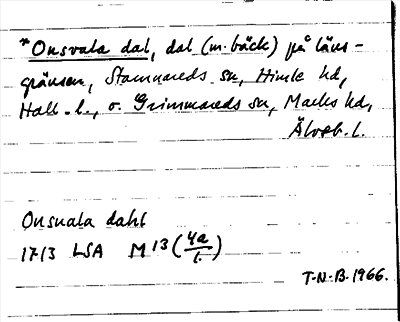 *Onsvala dal, dal (m. bäck) på läns-
gränsen, Stamnareds sn, Himle hd,
Hall. l., o. Grimmareds sn, Marks hd,
Älvsb. l.
Onsuala dahl
1713 LSA M 13 (4a/1.)
T.N.B. 1966.